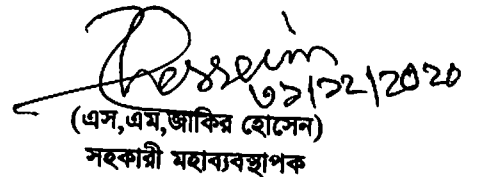 Hossein
৩১/১২/2020
(এস,এম,জাকির হোসেন)
সহকারী মহাব্যবস্থাপক